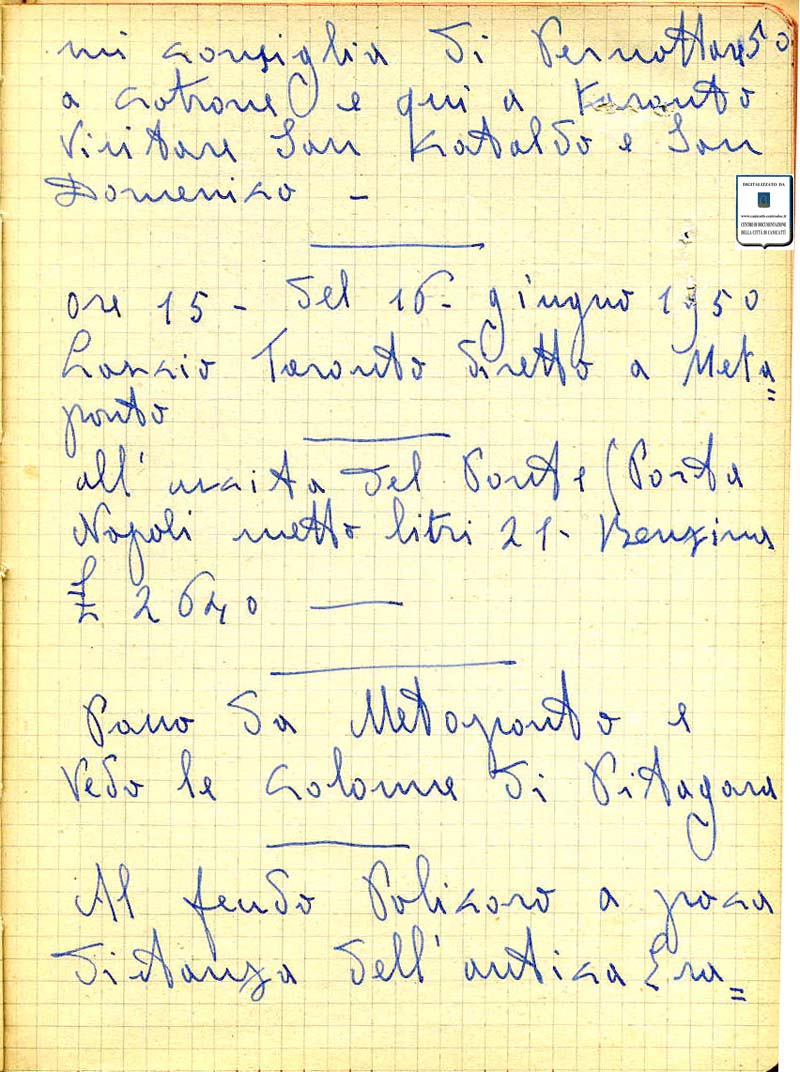 mi consiglia di Pernottare 50
a Cotrone e qui a Taranto
Visitare San Cataldo e San
Domenico -
DIGITALIZZATO DA
www.canicatti-centrodoc.it
CENTRO DI DOCUMENTAZIONE
DELLA CITTÀ DI CANICATTÌ
ore 15 - del 16 - giugno 1950
Lascio Taranto diretto a Meta=
ponto
all'uscita del Ponte (Porta
Napoli metto litri 21 - Benzina
£ 2640 —
Passo da Metaponto e
Vedo le Colonne di Pitagora
Al feudo Policoro a poca
distanza dell'antica Era=